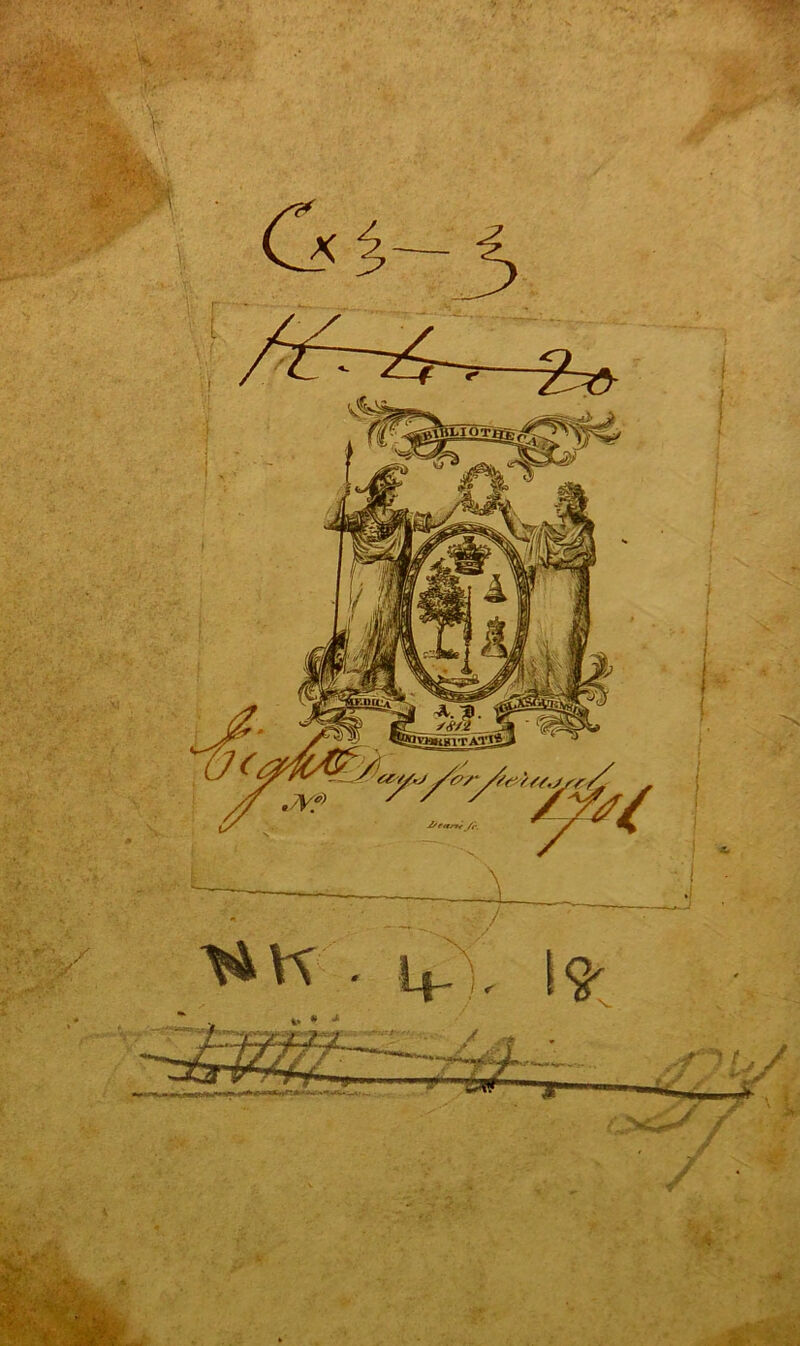 Cx 3–3
H. 4. 20
BIBLIOTHECA
MEDICA
A.D.
GLASGUENSIS
1812
UNIVERSITATIS
Eight Days for perusal
No. 1701
Deane sc.
NK. 4. 18
LVIII. 10. 27